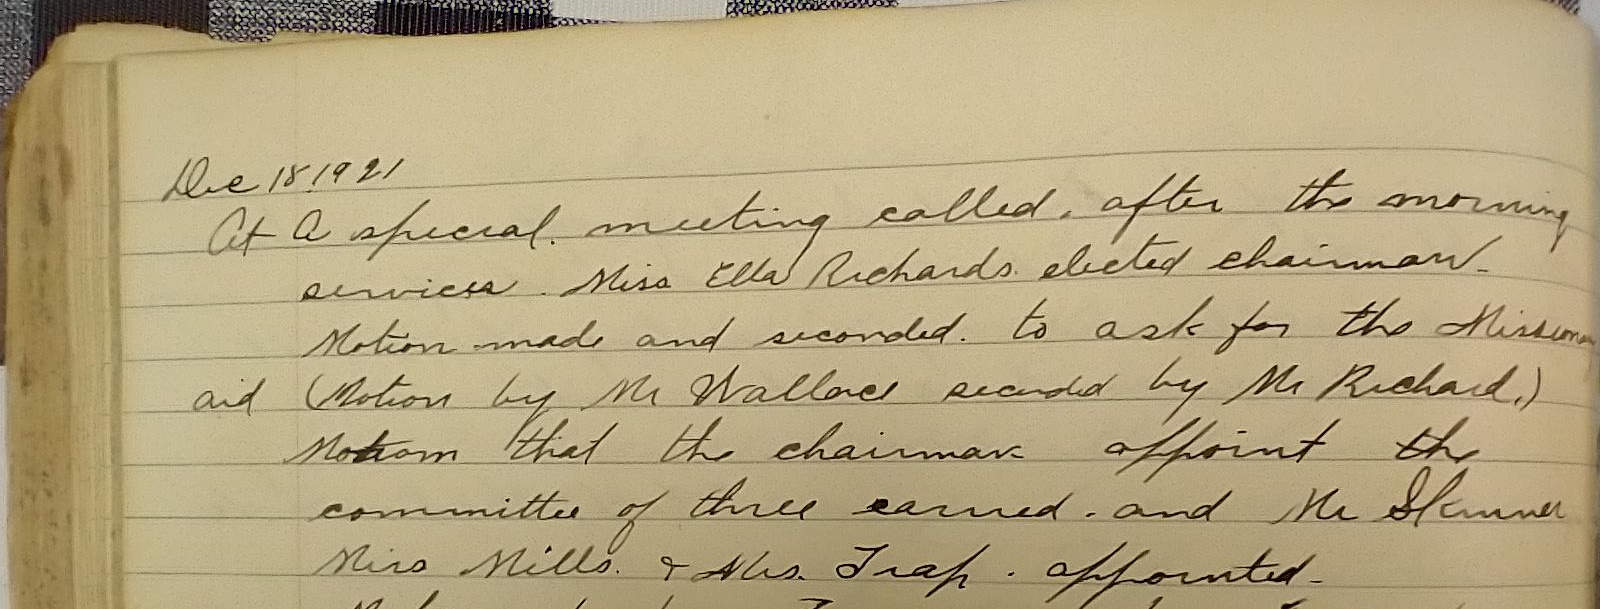 Dec 18, 1921
At a special. meeting called. after the morning
services. Miss Ella Richards. elected chairman.
Motion made and seconded. to ask for the Missionary
aid (Motion by Mr Wallace seconded by Mr Richard.)
Motion that the chairman appoint the
committee of three carried. and Mr Skinner
Miss Mills. & Mrs. Trap. appointed.